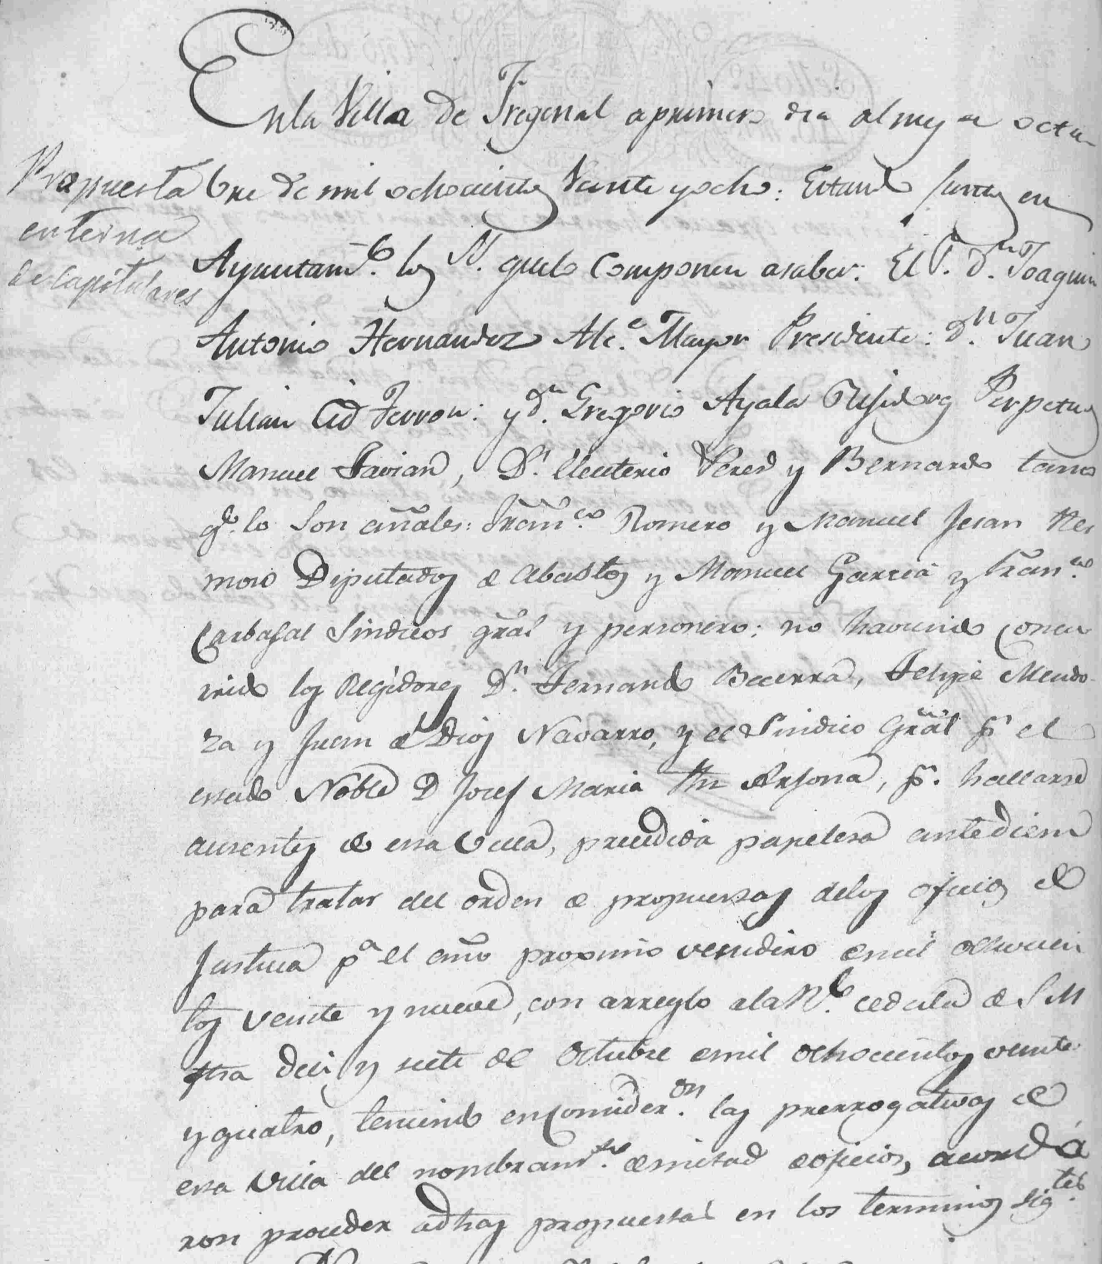 En la Villa de Fregenal a primero dia al mes de octu-
Propuesta
en terna
de capitulares
bre de mil ochocientos Veinte y ocho: Estando Juntos en
Ayuntam.to los SS. que lo Componen a saber: El S. D.n Joaquin
Antonio Hernandez Alc.e Mayor Presidente: D.n Juan
Julian Cid Ferron: y D.n Gregorio Ayala Rejidores Perpetuos
Manuel Favian, D.n Eleuterio Pered y Bernardo
q.e lo Son añales: Fran.co Romero y Manuel Jesan Her
moso Diputados de Abastos y Manuel Garcia y Fran.co
Carbajal Sindicos gral y personero: no haviendo Concu
rrido los Regidores D.n Fernando Becerra, Felipe Mendo-
za y Juan de Dios Navarro, y el Sindico Gral p.r el
estado Noble D Josef Maria de Arjona, p.r hallarse
ausentes de esta Villa, precedida papeleta antediem
para tratar del orden de propuestas de los oficios de
Justicia p.a el año proximo venidero de mil ochocien
tos veinte y nueve, con arreglo a la R.l cedula de S M
fha diez y siete de Octubre de mil ochocientos veinte
y quatro, teniendo en Consider.on las prerrogativas de
esta Villa del nombram.to de mitad de oficios, acorda
ron proceder adhas propuestas en los terminos sig.tes